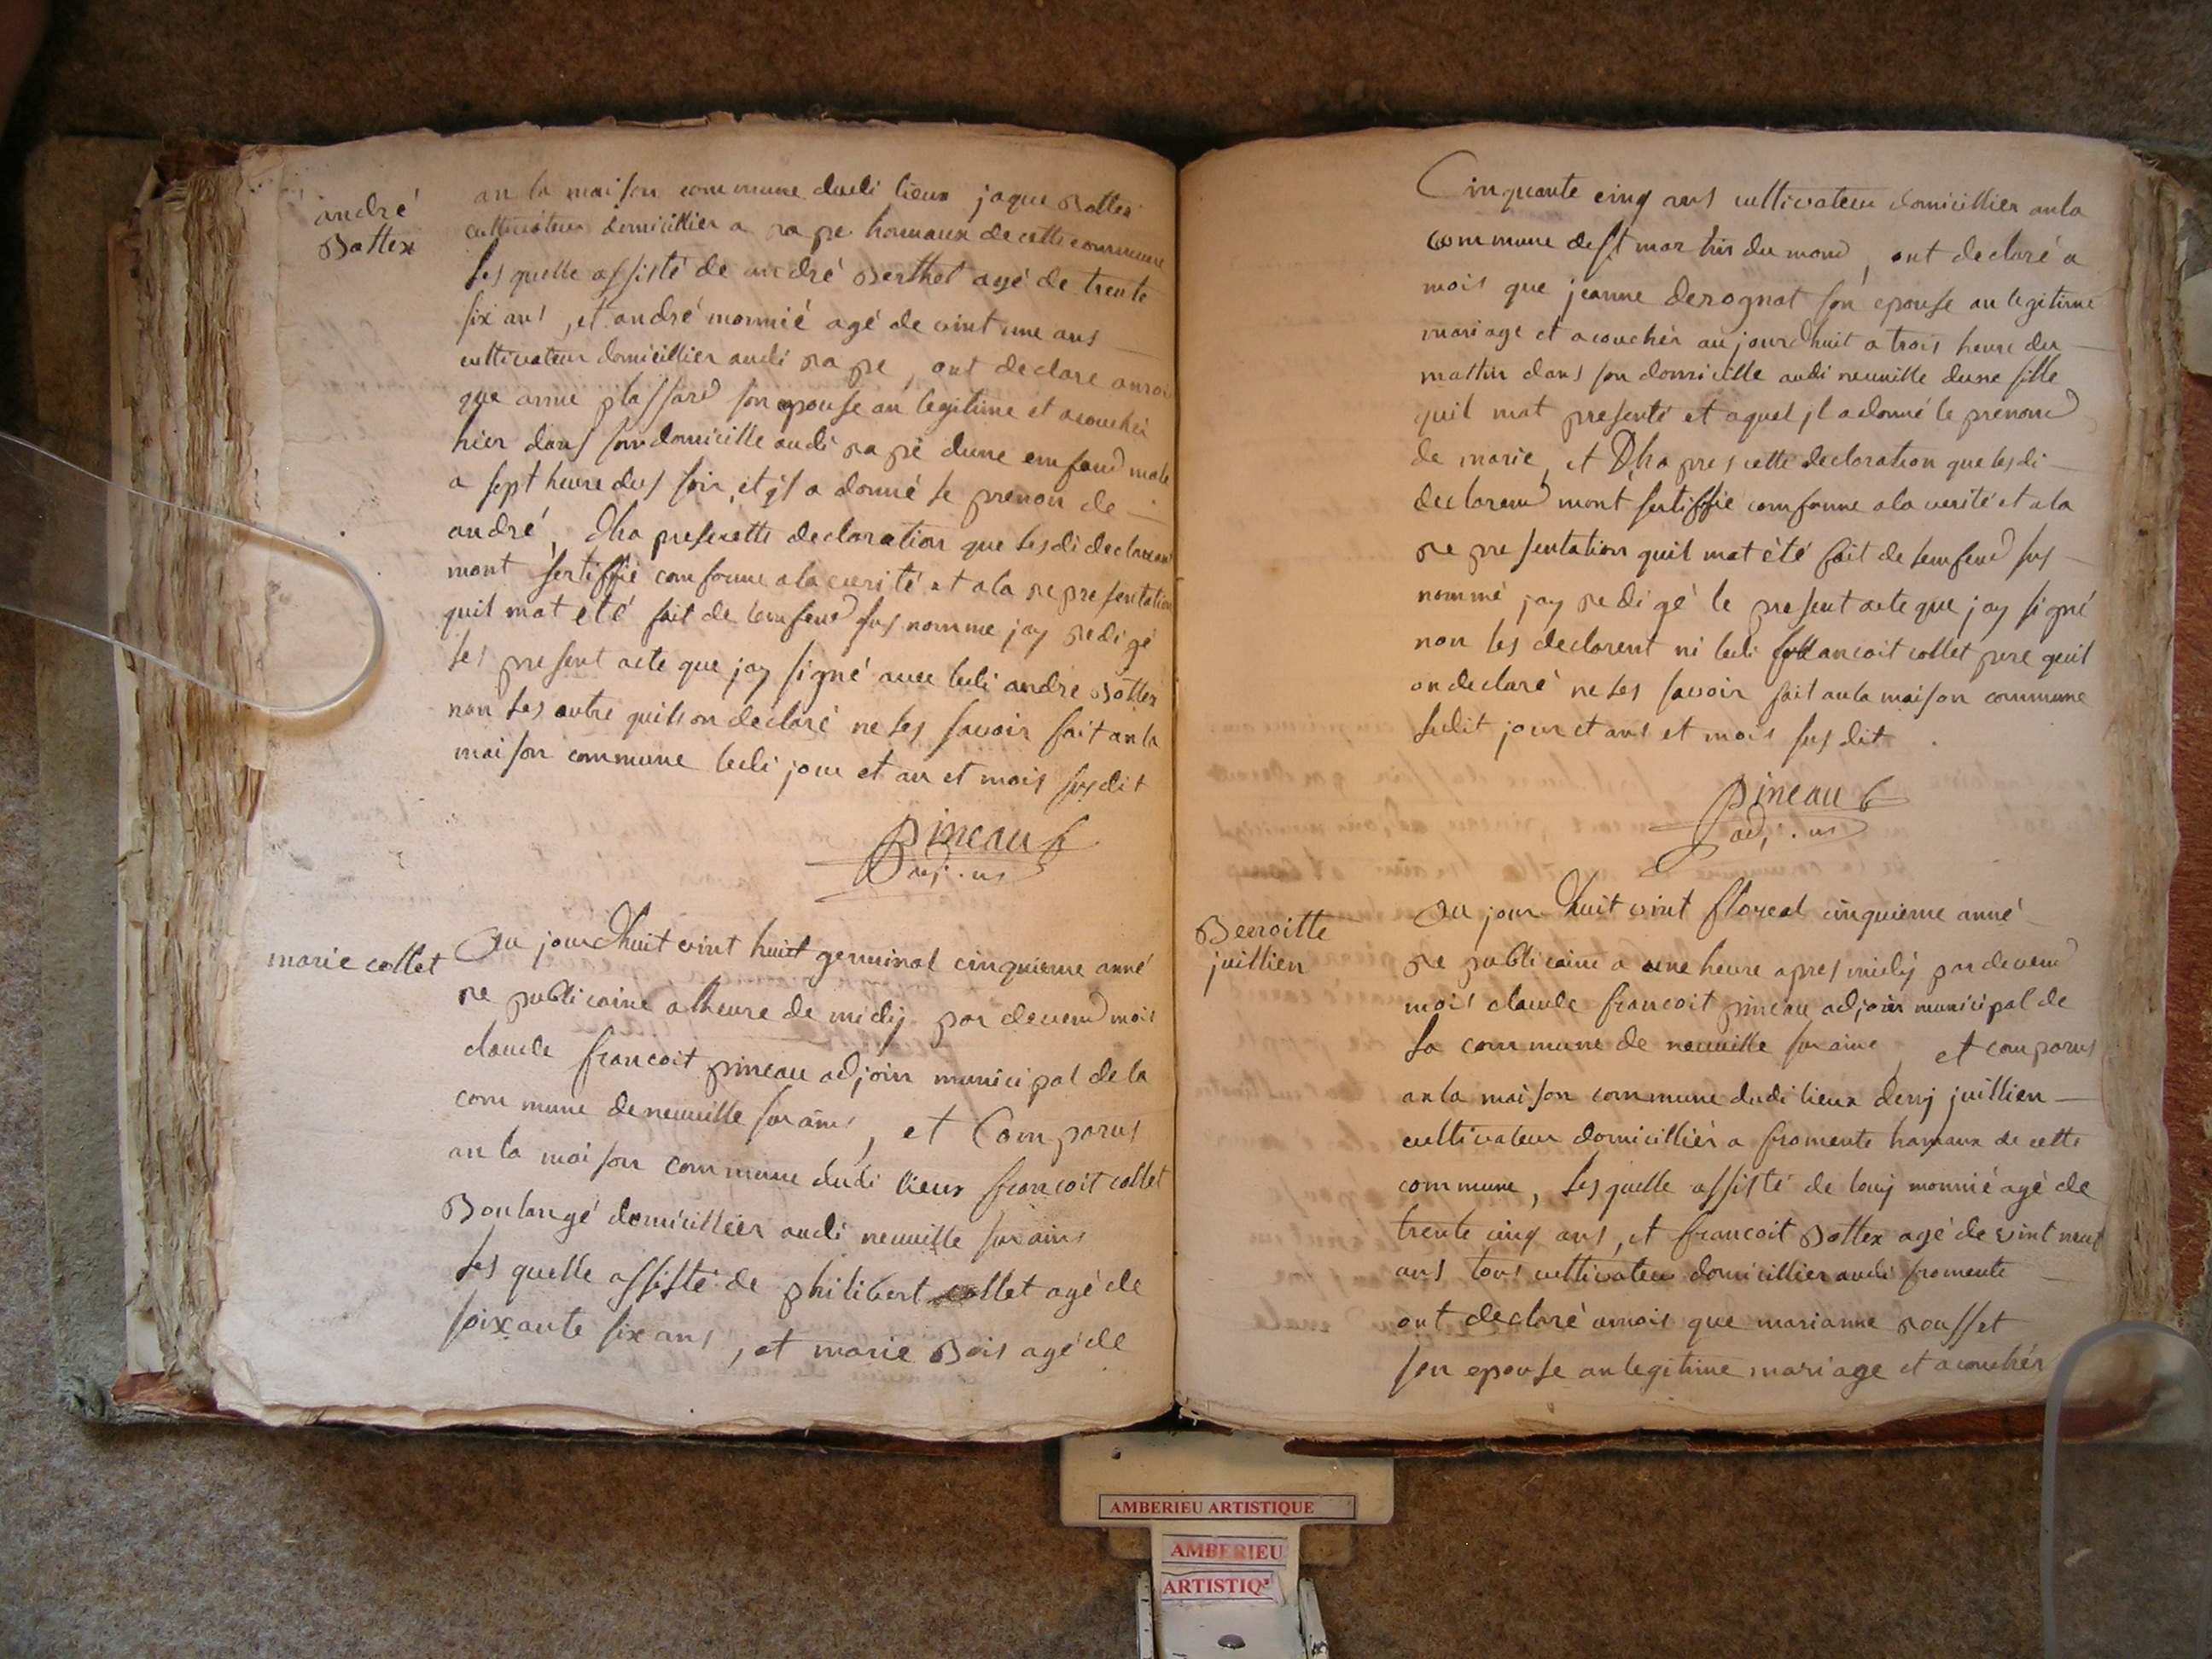 andré
Bottex
an la maison commune dudi lieux jaque Bottex
cultivateur domicillier a rape hamaux de cette commune
les quelle assisté de andré Berthet agé de trente
six ans, et andré monnié agé de vint une ans
cultivateur domicillier audi rape, ont declare
que anne plassard son epouse an legitime et acouché
hier dans son domicille audi rape dune emfend male
a sept heure dus soir, et a donné le prenon de
andré, Dha pres cette declaration que lesdi declarend
mont sertiffié comforme ala verité et ala representation
quil mat été fait de lemfend sus nomme jay redigé
les present acte que jay signé avec ledi andré Bottex
non les autre quilson declaré ne les savoir fait an la
maison commune ledi jour et an et mois susdit
pineau
adj. m
marie collet
Au jourdhuit vint huit germinal cinquieme anné
re publicaine a lheure de midij par devend mois
claude francoit pineau adjoin municipal de la
com mune deneuville sur ains, et Comparus
an la maison commune dudi lieux francoit collet
Boulangé domicillier audi neuville sur ains
les quelle assisté de philibert collet agé de
soixante six ans, et marie Bois agé de
Cinquante cinq ans cultivateur domicillier anla
commune de st mar tin du mond, ont declaré a
mois que jeanne derognat son epouse an legitime
mariage et acouchér aujourdhuit a trois heure du
mattin dans son domicille audi neuville dune fille
quil mat presenté et aquel jl adonné le prenond
de marie, et Dha pres cette declaration que lesdi
declarend mont sertiffié comforme ala verité et ala
re presentation quil mat été fait de lemfend sus
nommé jay redigé le present acte que jay signé
non les declarent ni ledi francoit collet pere quil
on declaré ne les savoir fait anla maison commune
ledit jour et ans et mois sus dit
pineau
adj. m
Benoitte
juillien
Au jour dhuit vint floreal cinquieme anné
re publicaine a une heure apres midij par devend
mois claude francoit pineau adjoin municipal de
la commune de neuville sur ains, et comparus
anla maison commune dudi lieux denij juillien
cultivateur domicillier a fromente hamaux de cette
commune, les quelle assisté de louij monnié agé de
trente cinq ans, et francoit Bottex agé de vint neuf
ans tous cultivateur domicillier audi fromente
ont declaré amois que marianne rousset
son epouse anlegitime mariage et acouchér
AMBERIEU ARTISTIQUE
AMBERIEU
ARTISTIQ